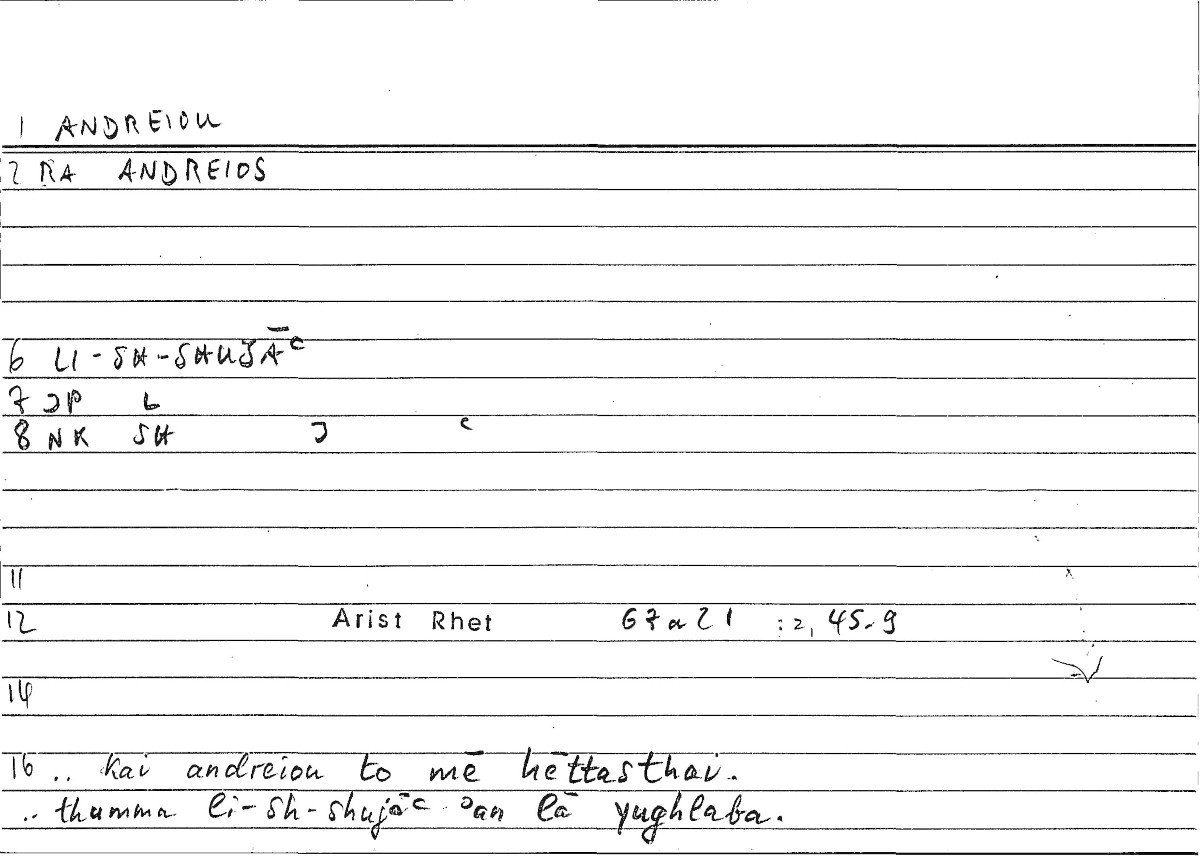 1 ANDREIOU
2 RA ANDREIOS
6 LI-SH-SHUJĀᶜ
7 ɔP L
8 NK SH J ᶜ
11
12 Arist Rhet 67a21 :2, 45.9
14
16 .. kai andreiou to mē hēttasthai.
.. thumma li-sh-shujāᶜ ᵓan lā yughlaba.